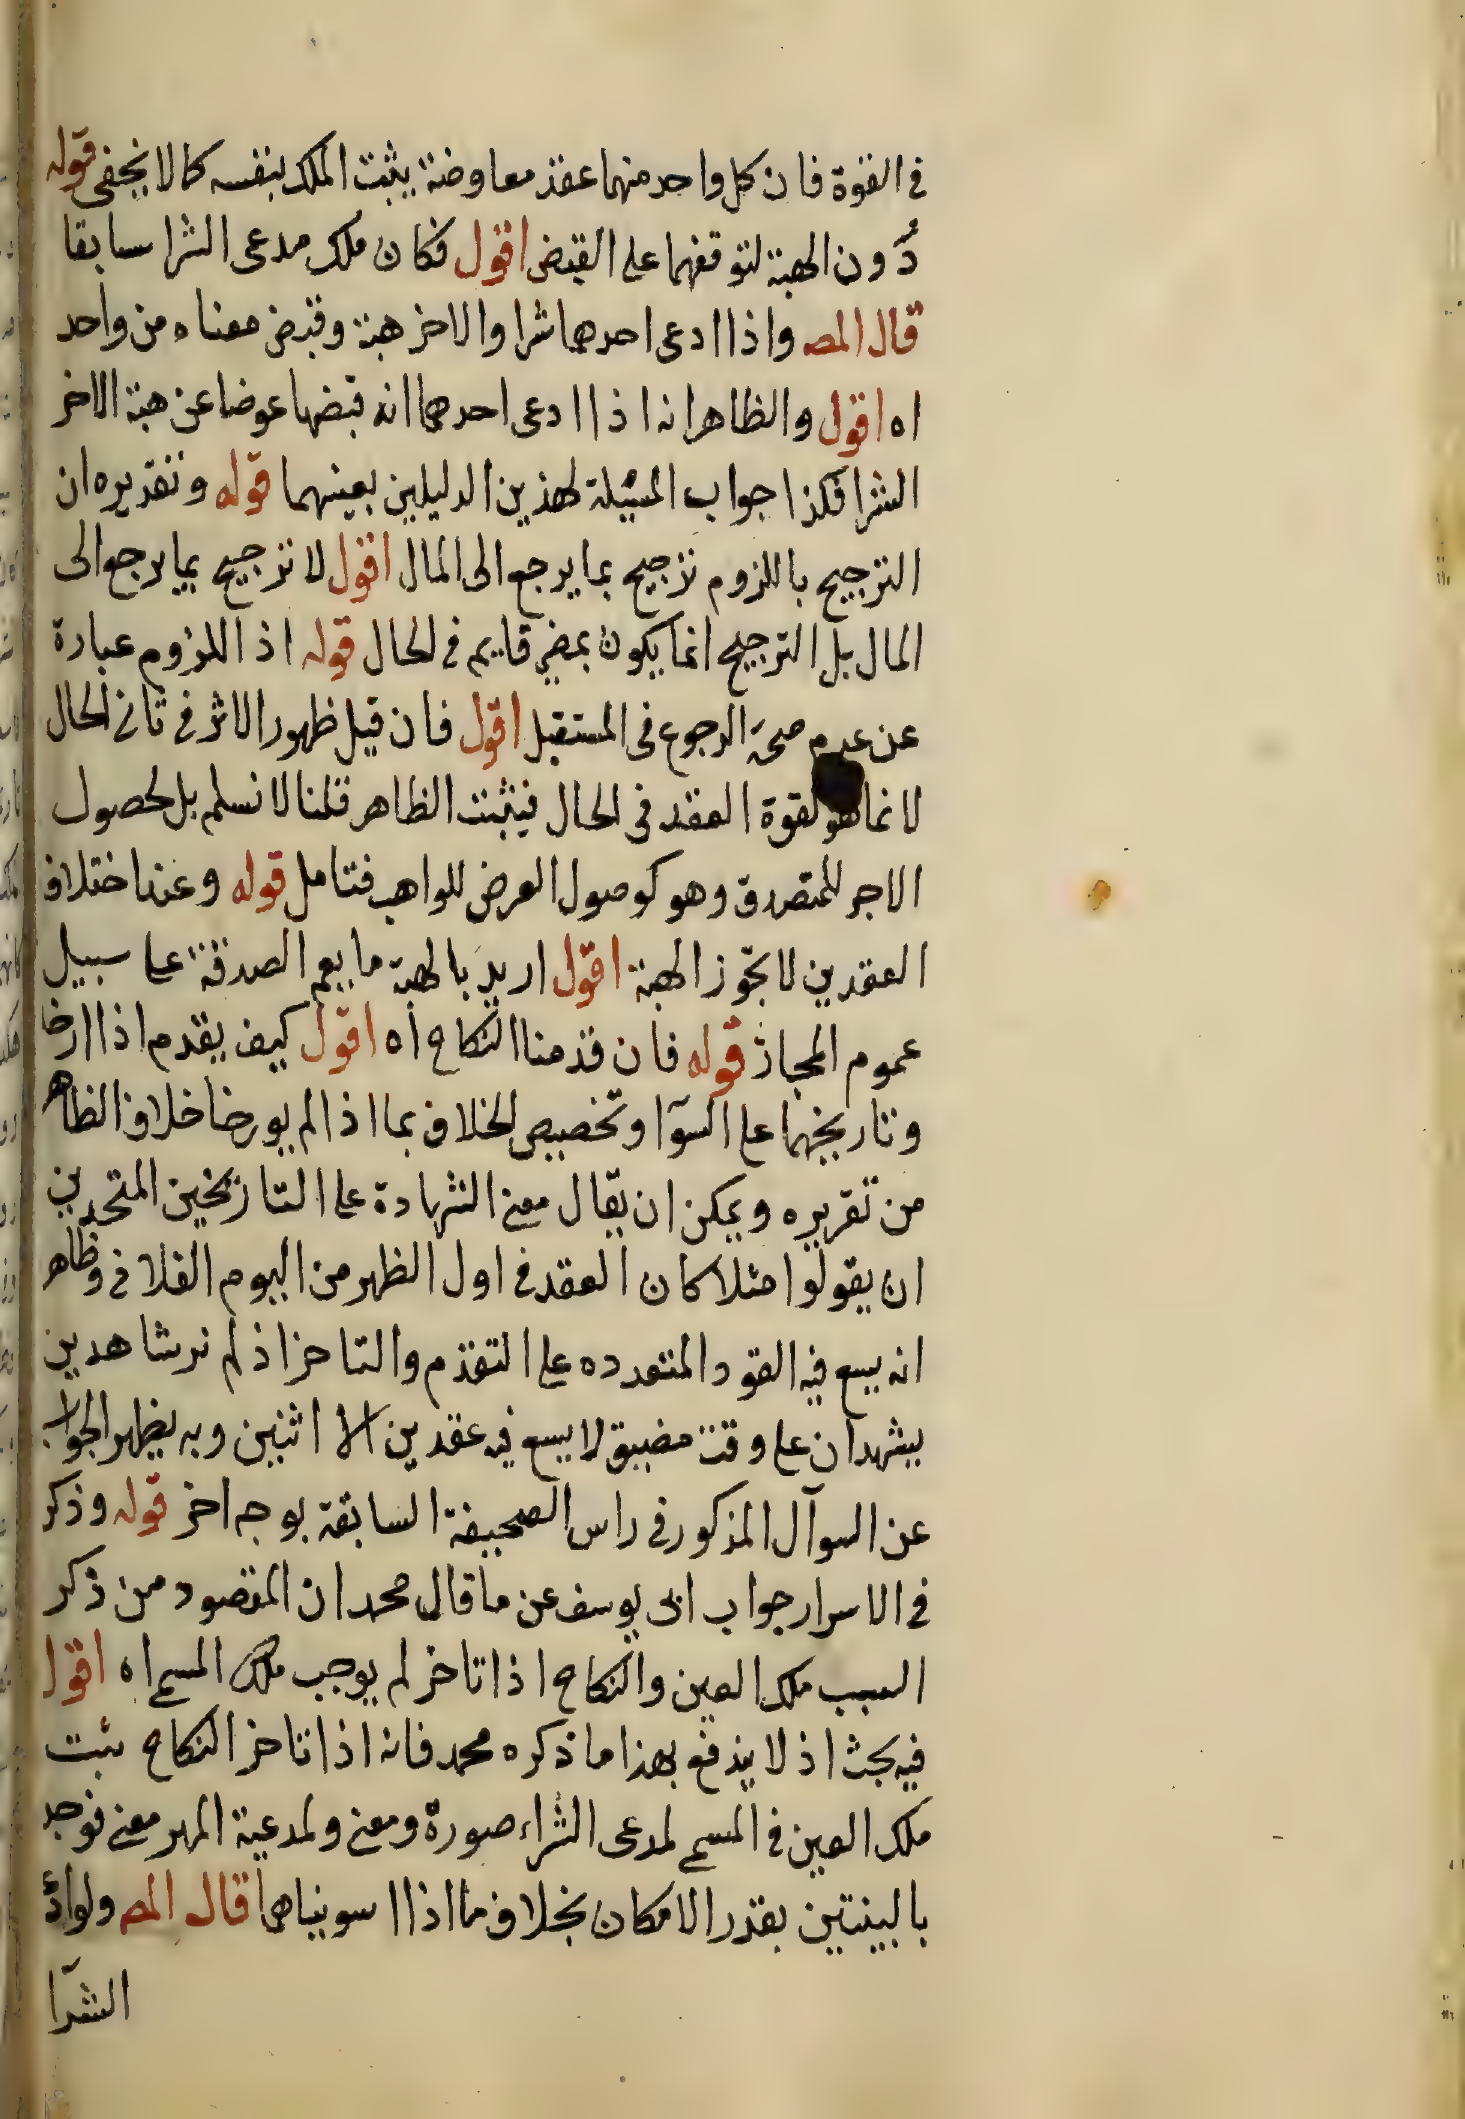 في القوة فان كل واحد منهما عقد معاوضة يثبت الملك بنفسه كما لا يخفى قوله
دُون الهبة لتوقفهما على القبض اقول فكان ملك مدعى الشرا سابقا
قال المص واذا ادعى احدهما شرا والاخر هبة وقبض معناه من واحد
اه اقول والظاهر انه اذا ادعى احدهما انه قبضها عوضا عن هبة الاخر
الشرا فكذا جواب المسئلة لهذين الدليلين بعينهما قوله وتقديره ان
الترجيح باللزوم ترجيح بما يرجع الى المال اقول لا ترجيح بما يرجع الى
المال بل الترجيح انما يكون بمعنى قايم في الحال قوله اذ اللزوم عبارة
عن عدم صحة الرجوع فى المستقبل اقول فان قيل ظهور الاثر في ثاني الحال
لانما هو لقوة العقد فى الحال فيثبت الظاهر قلنا لا نسلم بل لحصول
الاجر للمتصدق وهو كوصول العوض للواهب فتامل قوله وعند اختلاف
العقدين لا تجوز الهبة اقول اريد بالهبة ما يعم الصدقة على سبيل
عموم المجاز قوله فان قدمنا النكاح اه اقول كيف يقدم اذا ارخا
وتاريخهما على السوآ وتخصيص الخلاف بما اذا لم يورخا خلاف الظاهر
من تقريره ويمكن ان يقال معنى الشهادة على التاريخين المتحدين
ان يقولوا مثلا كان العقد في اول الظهر من اليوم الفلاني وظاهر
انه يسع فيه القود المتعدده على التقدم والتاخر اذ لم نر شاهدين
يشهدان على وقت مضيق لا يسع فيه عقدين الا اثنين وبه يظهر الجواب
عن السوآل المذكور في راس الصحيفة السابقة بوجه اخر قوله وذكر
في الاسرار جواب ابى يوسف عن ما قال محمد ان المقصود من ذكر
السبب ملك العين والنكاح اذا تاخر لم يوجب ملك المسمى اه اقول
فيه بحث اذ لا يندفع بهذا ما ذكره محمد فانه اذا تاخر النكاح يثبت
ملك العين في المسمى لمدعى الشراء صورة ومعنى ولمدعية المهر معنى فوجد
بالبينتين بقدر الامكان بخلاف ما اذا سويناهما قال المص ولواد
الشرآ